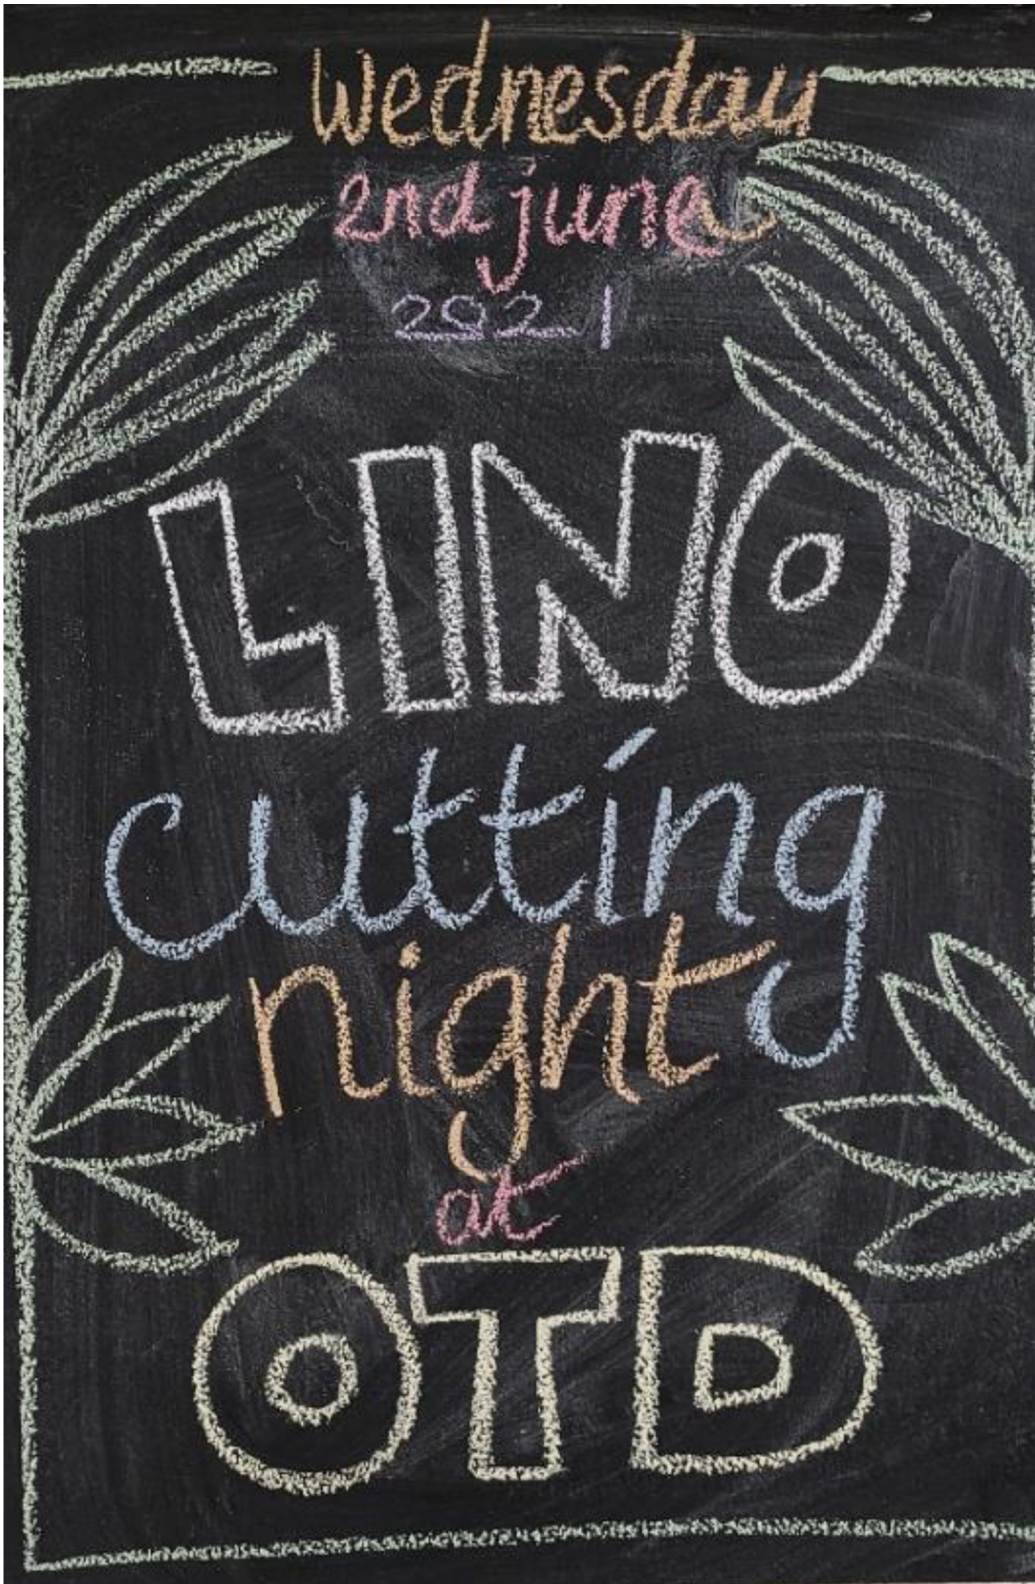 Wednesday
2nd june
2021
LINO
cutting
night
at
OTD